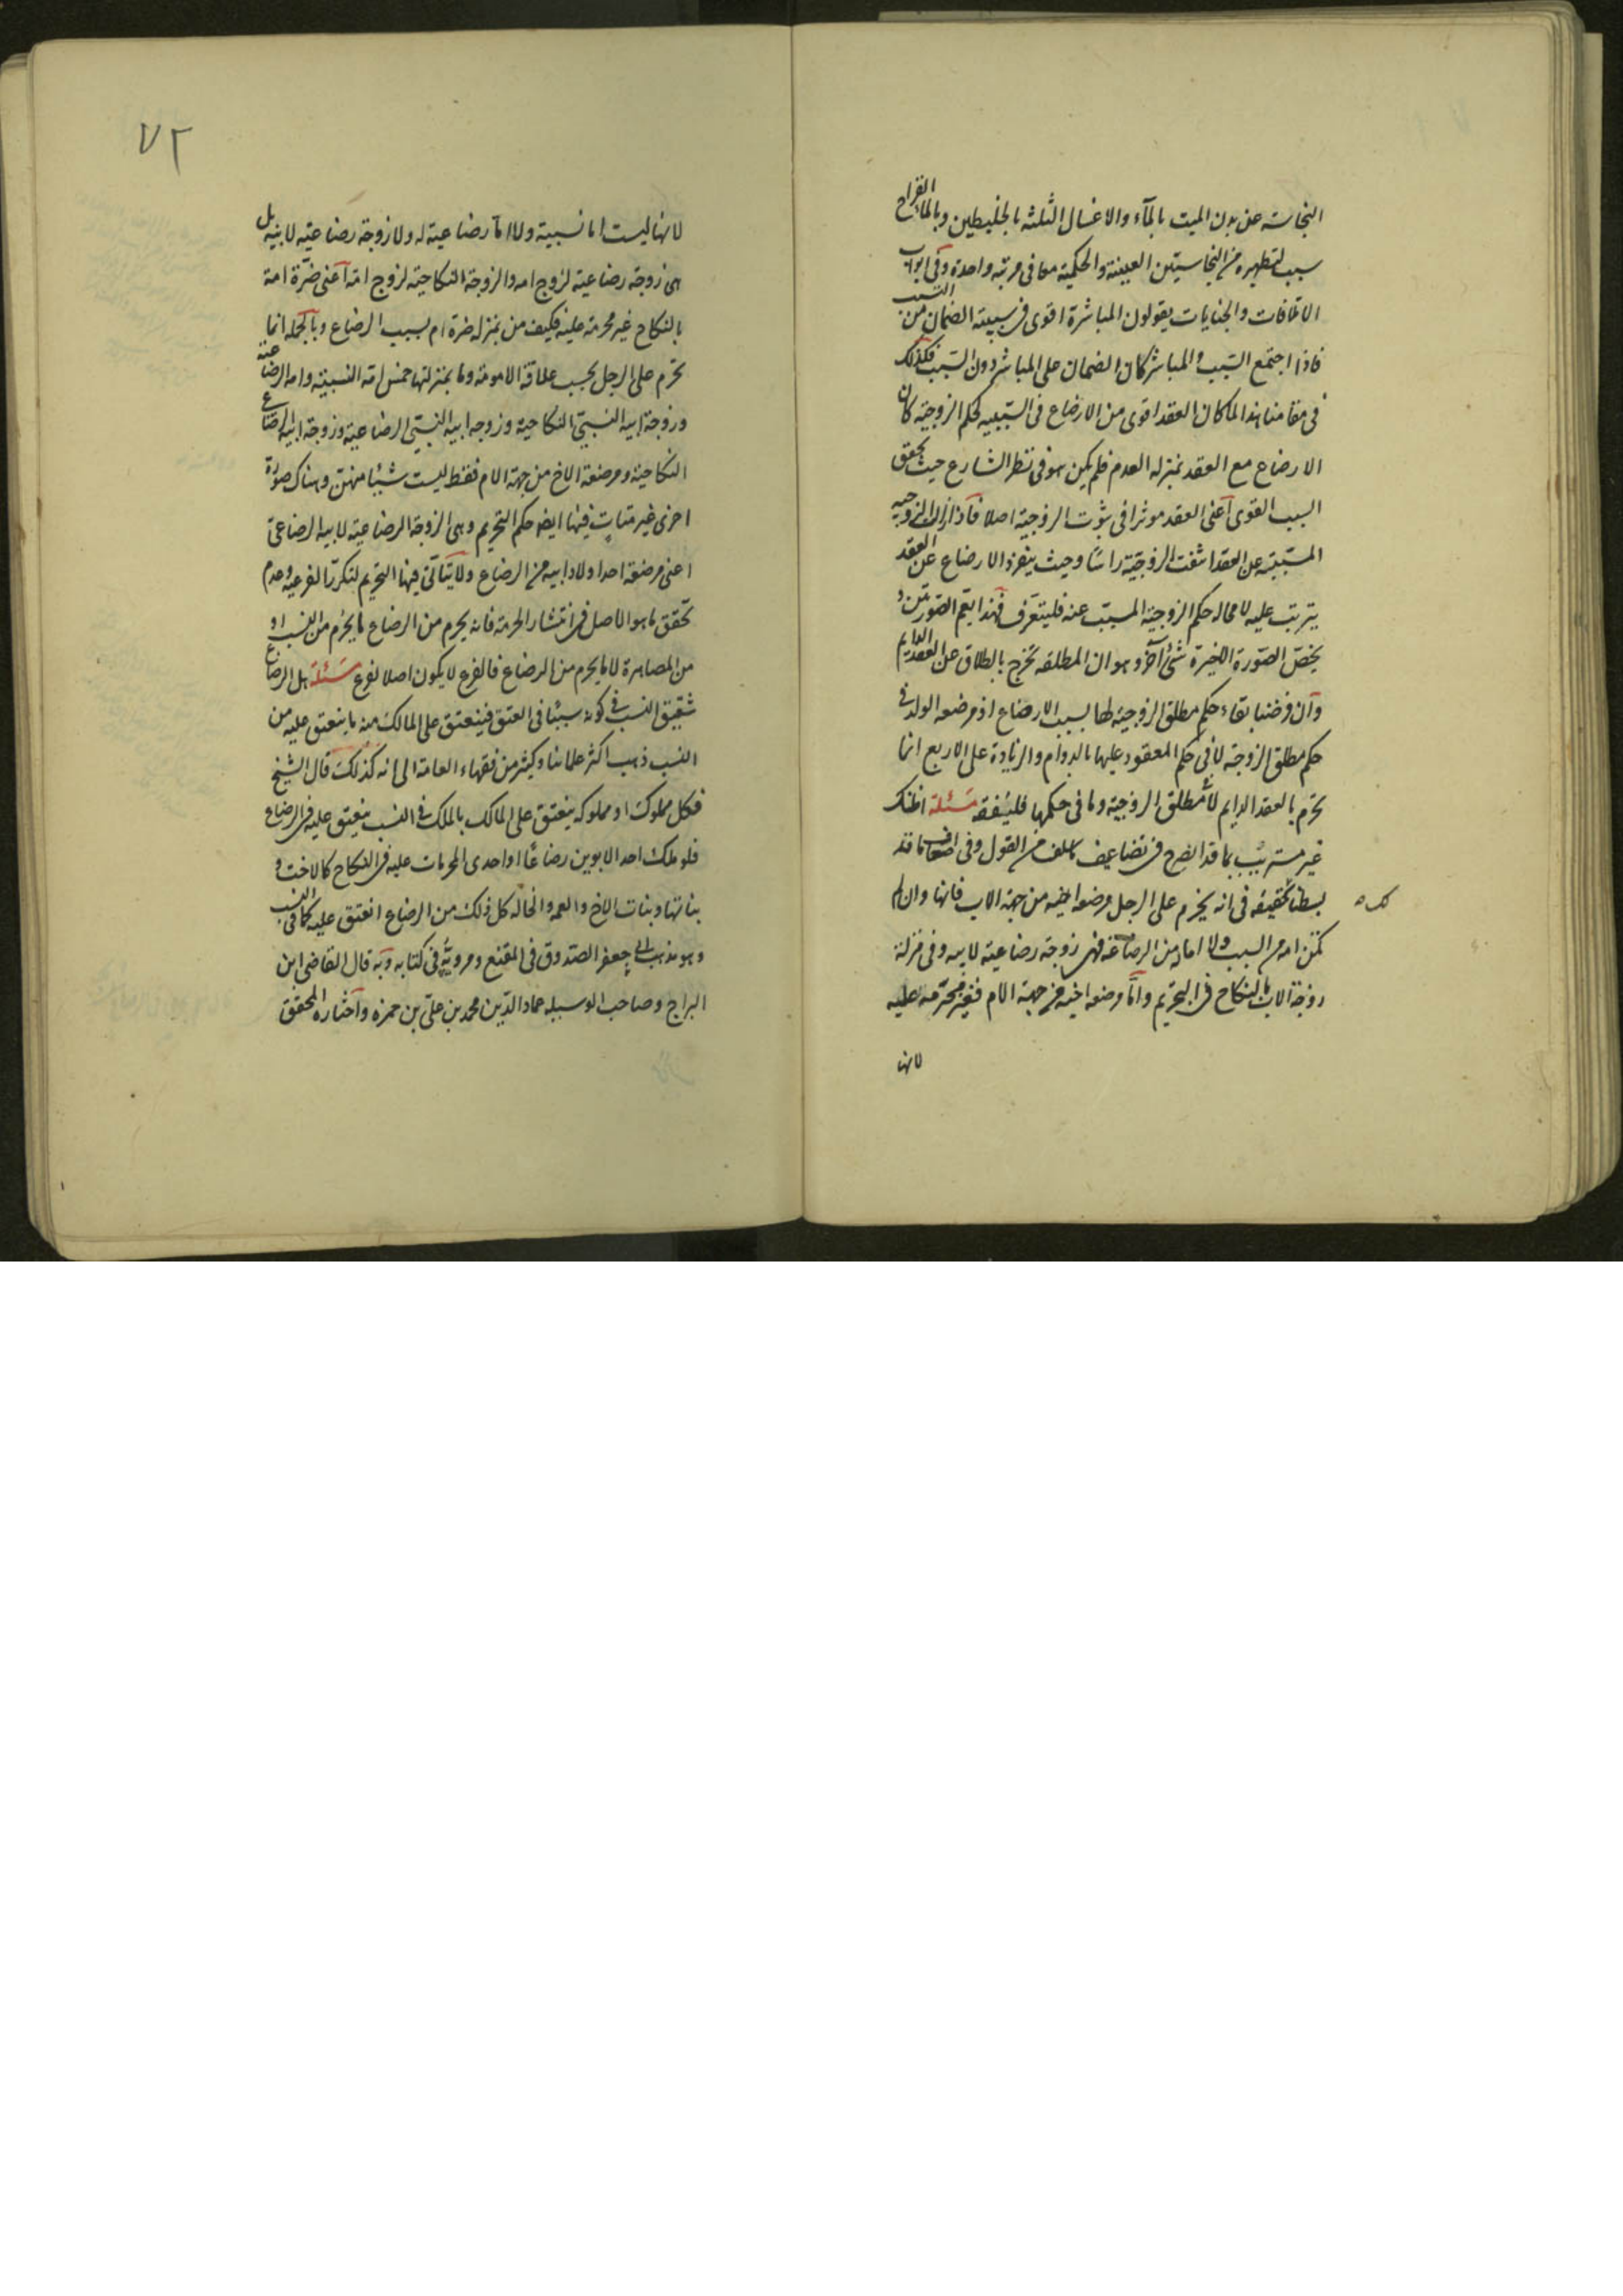 النجاسة عن بدن الميت بالمآء والاغسال الثلثه بالخليطين وبالمآء القراح
سبب لتطهيره من النجاستين العينية والحكمية معا فى مرتبه واحدة وفى ابواب
الاتلافات والجنايات يقولون المباشرة اقوى فى سببية الضمان من التسبب
فاذا اجتمع السبب والمباشر كان الضمان على المباشر دون السبب فكذلك
فى مقامنا هذا لما كان العقد اقوى من الارضاع فى السببيه لحكم الزوجية كان
الارضاع مع العقد بمنزله العدم فلم يكن هو فى نظر الشارع حيث تحقق
السبب القوى اعنى العقد موثرا فى ثبوت الزوجية اصلا فاذا زالت الزوجيه
المسببة عن العقد انتفت الزوجية راسًا وحيث ينفرد الارضاع عن العقد
يترتب عليه لا محاله حكم الزوجية المسبب عنه فليتعرف فهذا يعم الصورتين و
يخص الصورة الاخيرة شئ آخر وهو ان المطلقه تخرج بالطلاق عن العقد الدايم
وان فرضنا بقاء حكم مطلق الزوجية لها بسبب الارضاع اذ مرضعه الولد فى
حكم مطلق الزوجة لا فى حكم المعقود عليها بالدوام والزيادة على الاربع انما
تحرم بالعقد الدايم لا بمطلق الزوجية وما فى حكمها فليتفقه مسئلة اظنك
غير مستريب بما قد انصرح فى تضاعيف ما سلف من القول وفى اضعاف ما قد
بسطنا تحقيقه فى انه يحرم على الرجل مرضعه اخيه من جهة الاب فانها وان لم
تكن امه من النسب ولا امّا له من الرضاعة فهى زوجة رضاعية لابيه وفى منزلة
زوجة الاب بالنكاح فى التحريم وامّا مرضعه اخيه من جهة الام فغير محرمه عليه
لانها
٧٢
لانها ليست امّا نسبية ولا امّا رضاعية له ولا زوجة رضاعيّه لابيه بل
هى زوجة رضاعية لزوج امه والزوجة النكاحية لزوج امّه اعنى ضرّة امه
بالنكاح غير محرمة عليه فكيف من بمنزله ضرة ام بسبب الرضاع وبالجملة انما
تحرم على الرجل بحسب علاقة الامومة وما بمنزلتها خمس امّه النسبيّة وامه الرضاعية
وزوجة ابيه النسبىّ النكاحية وزوجه ابيه النسبىّ الرضاعية وزوجة ابيه الرضاعى
النكاحية ومرضعة الاخ من جهة الام فقط ليست شيئا منهن وهناك صورة
اخرى غير متأت فيها ايضا حكم التحريم وهى الزوجة الرضاعية لابيه الرضاعىّ
اعنى مرضعة احد اولاد ابيه من الرضاع ولا يتأتى فيها التحريم لتكرر الفرعية وعدم
تحقق ما هو الاصل فى انتشار الحرمة فانه يحرم من الرضاع ما يحرم من النسب او
من المصاهرة لا ما يحرم من الرضاع فالفرع لا يكون اصلا لفرع مسئلة هل الرضاع
شقيق النسب فى كونه سببًا فى العتق فينعتق على المالك منه ما ينعتق عليه من
النسب ذهب اكثر علمائنا وكثير من فقهاء العامة الى انه كذلك قال الشيخ
فكل مملوك او مملوكه ينعتق على المالك بالملك فى النسب ينعتق عليه فى الرضاع
فلو ملك احد الابوين رضاعًا او احدى المحرمات عليه فى النكاح كالاخت و
بناتها وبنات الاخ والعمه والخاله كل ذلك من الرضاع انعتق عليه كما فى النسب
وهو مذهب ابى جعفر الصدوق فى المقنع ومرويّه فى كتابه وبه قال القاضى ابن
البراج وصاحب الوسيله عماد الدّين محمد بن علىّ بن حمزه واختاره المحقق